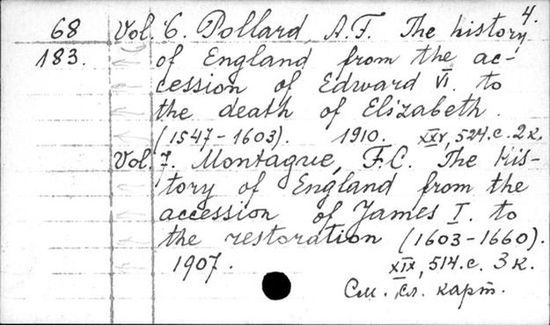 4.
68 Vol. 6. Pollard, A.F. The history
183. of England from the ac-
cession of Edward VI. to
the death of Elizabeth.
(1547-1603). 1910. XXV, 524.c. 2к.
Vol. 7. Montague, F.C. The his-
tory of England from the
accession of James I. to
the restoration (1603-1660).
1907. XIX, 514.c. 3к.
См. сл. карт.